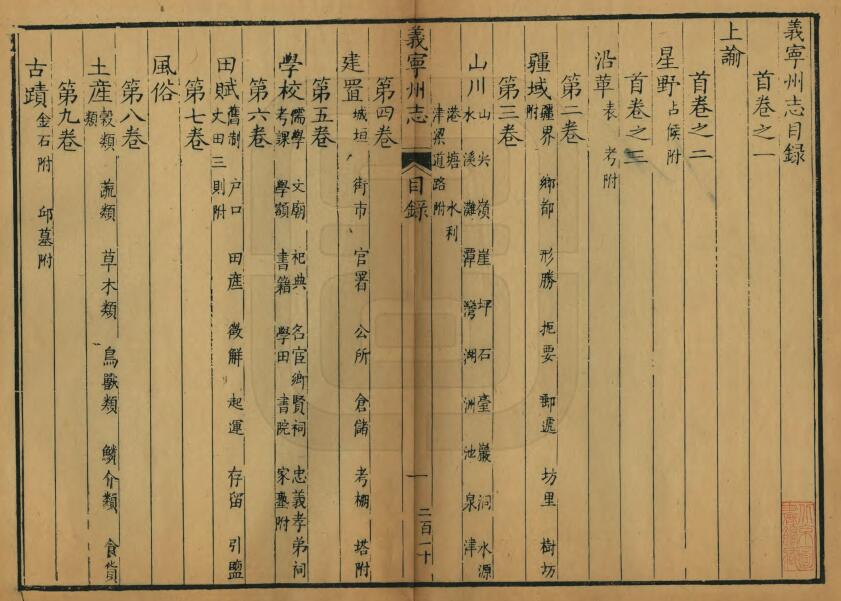 義寧州志目錄
首卷之一
上諭
首卷之二
星野 占候附
首卷之三
沿革 表 考附
第二卷
疆域 疆界 鄉都 形勝 扼要 郵遞 坊里 樹坊附
第三卷
山川 山 尖 嶺 崖 坪 石 臺 巖 洞 水源
水 溪 灘 潭 灣 湖 洲 池 泉 津
港 塘 水利
津梁道路附
義寧州志 目錄 一 二百一十
第四卷
建置 城垣 街市 官署 公所 倉儲 考棚 塔附
第五卷
學校 儒學 文廟 祀典 名宦鄉賢祠 忠義孝弟祠
考課 學額 書籍 學田 書院 家塾附
第六卷
田賦 舊制 戶口 田産 徵解 起運 存留 引鹽
丈田三則附
第七卷
風俗
第八卷
土産 穀類 蔬類 草木類 鳥獸類 鱗介類 食貨類
第九卷
古蹟 金石附 邱墓附